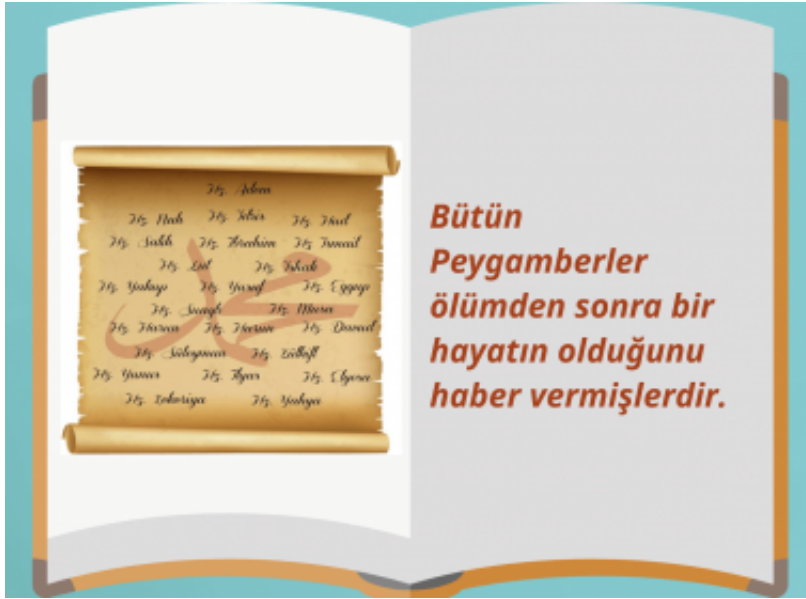 Hz. Adem
Hz. Nuh Hz. İdris Hz. Hud
Hz. Salih Hz. İbrahim Hz. İsmail
Hz. Lut Hz. İshak
Hz. Yakup Hz. Yusuf Hz. Eyyup
Hz. Şuayb Hz. Musa
Hz. Harun Hz. Davud
Hz. Süleyman Hz. Zülkifl
Hz. Yunus Hz. İlyas Hz. Elyesa
Hz. Zekeriya Hz. Yahya
محمد
Bütün
Peygamberler
ölümden sonra bir
hayatın olduğunu
haber vermişlerdir.